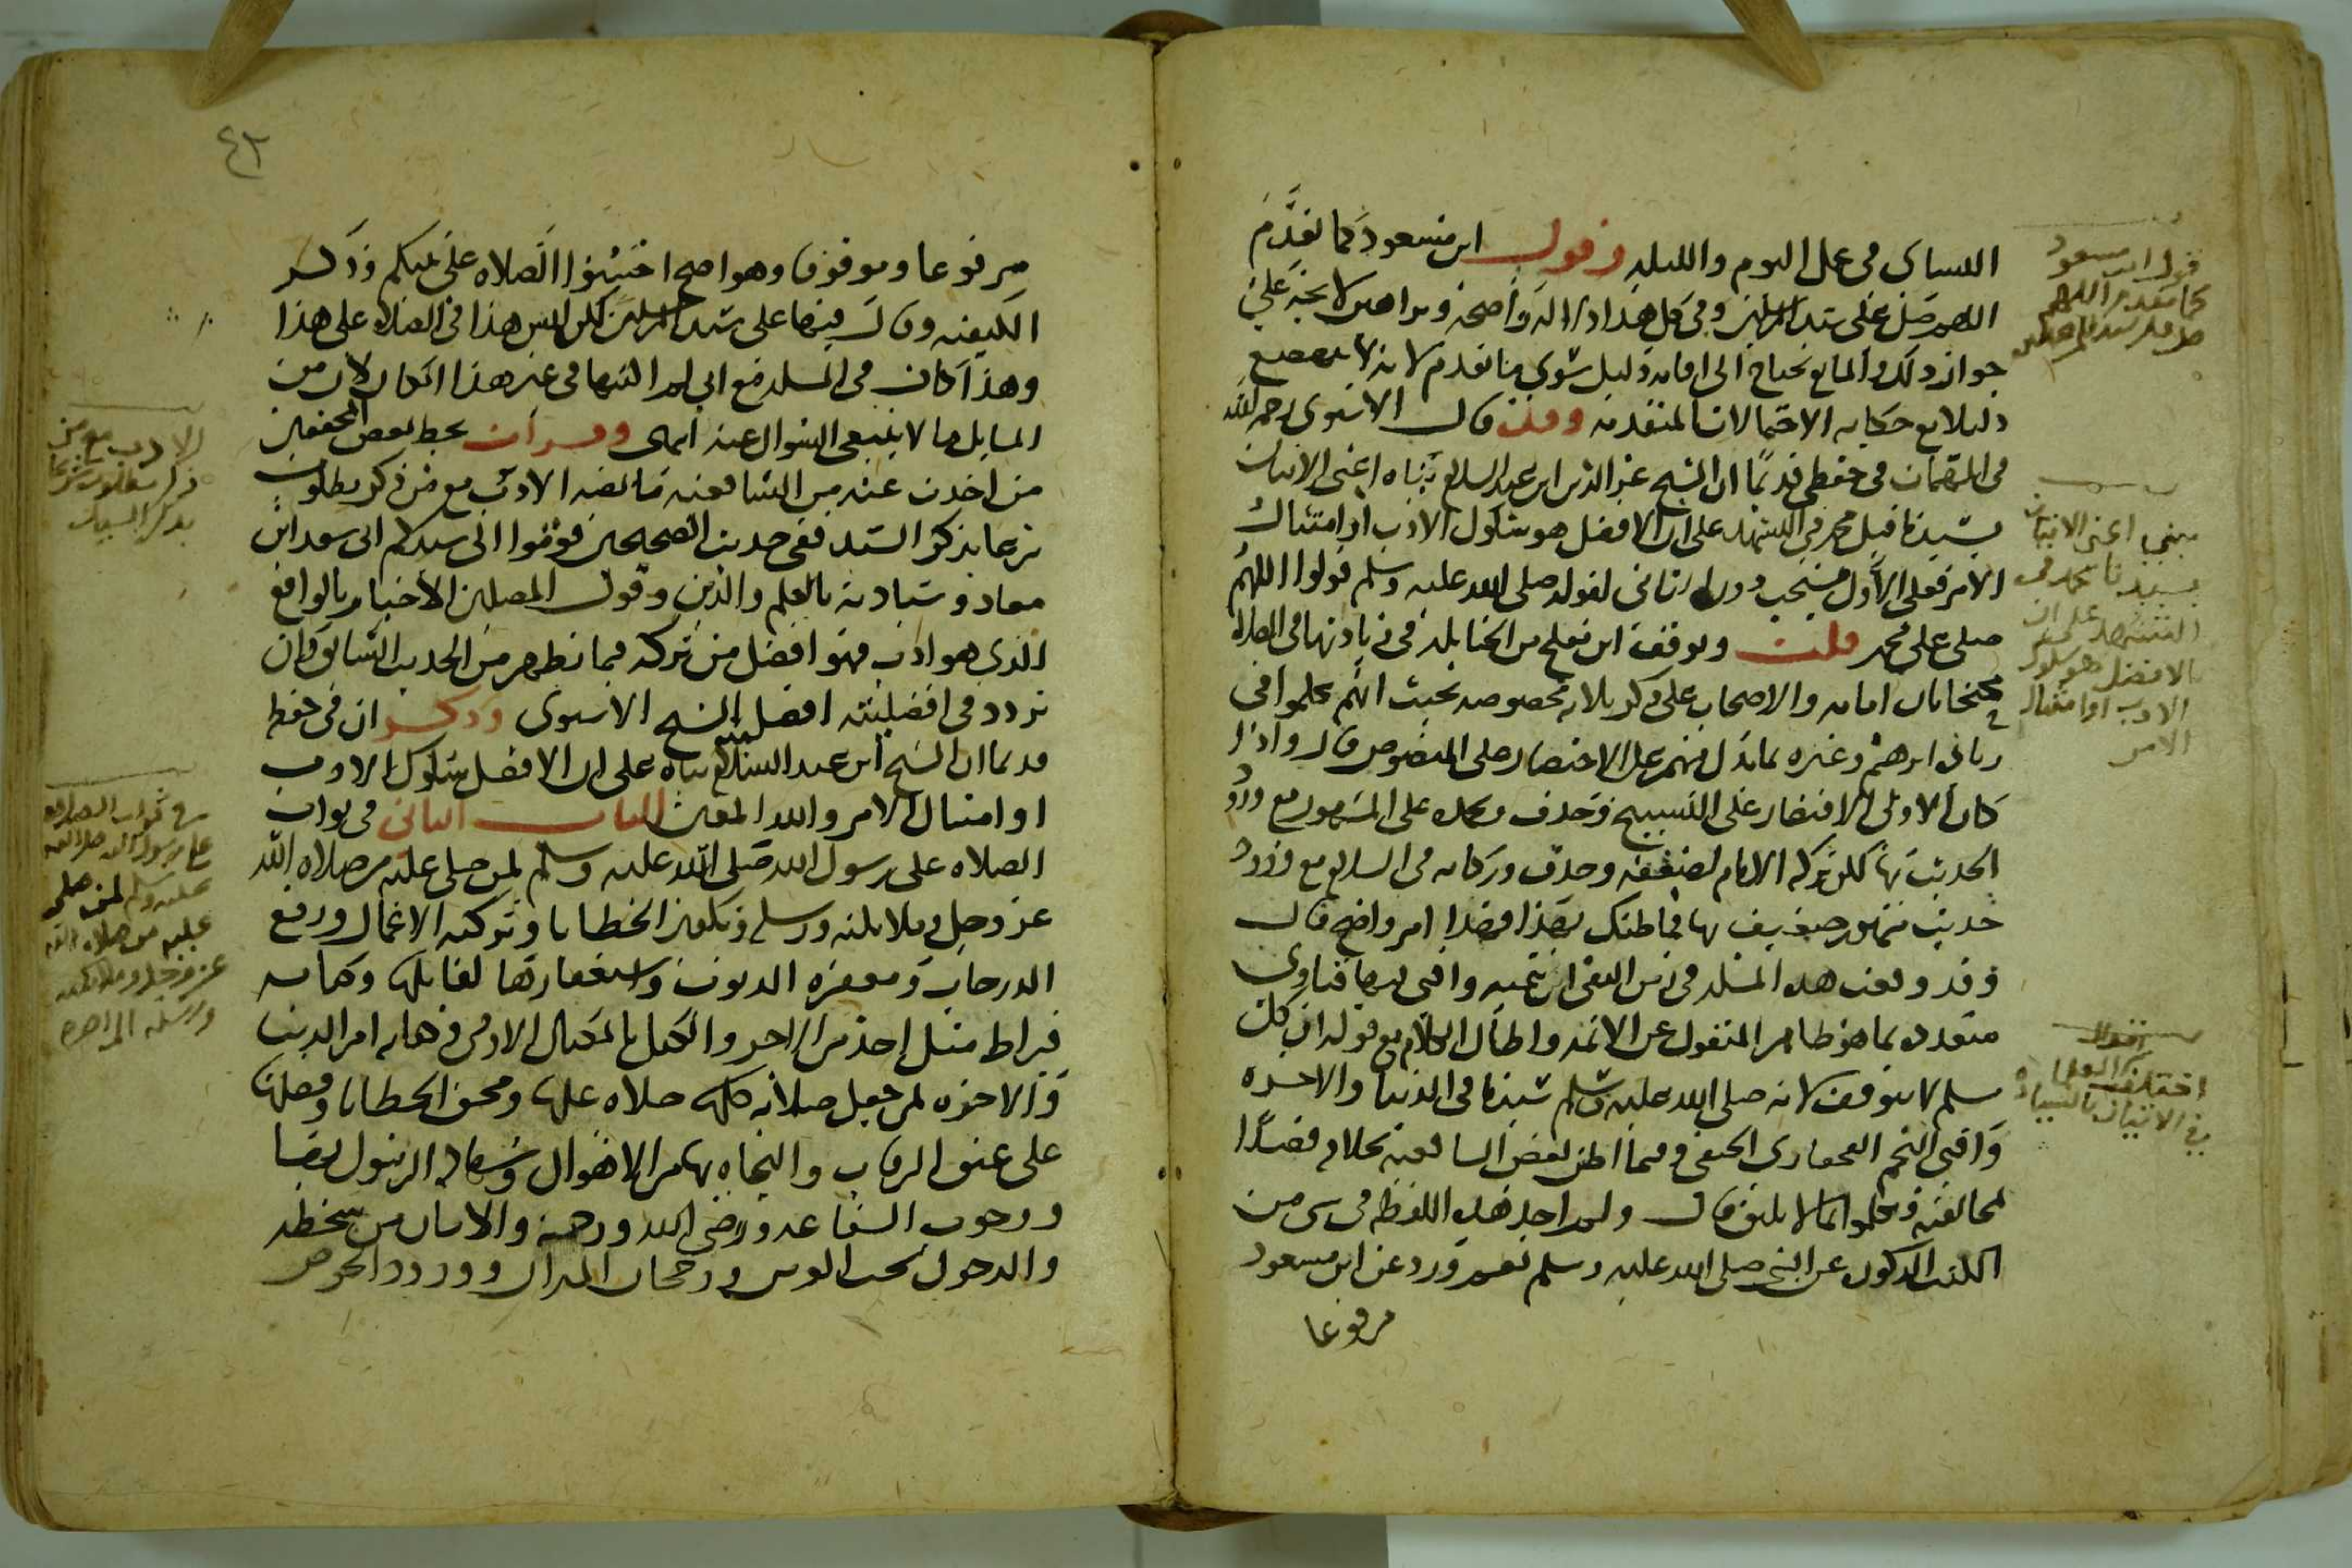 النسائي في عمل اليوم والليلة وقول ابن مسعود كما تقدم
اللهم صل على سيد المرسلين وفي كل هذا دلالة واضحة وبراهين لائحة على
جواز ذلك والمانع يحتاج الى اقامة دليل سوى ما تقدم لانه لا ينهض
دليلا مع حكاية الاحتمالات المتقدمة وقد قال الاسنوي رحمه الله
في المهمات في حفظي قديما ان الشيخ عز الدين ابن عبد السلام بناه اعني الاتيان
بسيدنا قبل محمد في التشهد على ان الافضل هو سلوك الادب او امتثال
الامر فعلى الاول مستحب دون الثاني لقوله صلى الله عليه وسلم قولوا اللهم
صلى على محمد قلت وتوقف ابن مفلح من الحنابلة في زيادتها في الصلاة
محتجا بان امامه والاصحاب على ذكر بلانه مخصوصه بحيث انهم تكلموا في
ربنا ابرهيم وغيره بما يدل منهم على الاختصار على المنصوص قال واذا
كان الاولى الاقتصار على التسبيح وحذف وبحمده على المشهور مع ورود
الحديث بها لكن تركه الامام لضعفه وحذف وبركاته في السلام مع ورود
حديث مشهور ضعيف بها فما ظنك بهذا فهذا امر واضح قال
وقد وقعت هذه المسئلة في زمن التقي ابن تيمية وافتى فيها فتاوى
متعددة بما هو ظاهر المنقول عن الائمة واطال الكلام مع قوله ان كل
مسلم لا يتوقف لانه صلى الله عليه وسلم سيدنا في الدنيا والاخرة
وافتى النجم القحفازي الحنفي وفيما اظن بعض الشافعية بكلام قصدا
لمخالفته وتكلموا بما لا يليق قال ولم اجد هذه اللفظة في شي من
الكتب المذكور عن النبي صلى الله عليه وسلم نعم ورد عن ابن مسعود
مرفوعا
قول ابن مسعود
كما تقدم اللهم
صل على سيد المرسلين
يبنى اعني الاتيان
بسيدنا محمد في
التشهد على ان
الافضل هو سلوك
الادب او امتثال
الامر
اختلف العلما
في الاتيان بالسيادة
٤٣
مرفوعا وموقوفا وهو اصح احسنوا الصلاة على نبيكم وذكر
الكيفية وقال فيها على سيد المرسلين لكن ليس هذا في الصلاة على هذا
وهذا كان في المسئلة مع اني لم انتهها في غير هذا المكان لان من
المسايل ما لا ينبغي السؤال عنه انتهى وقرات بخط بعض المحققين
من اخذت عنه من الشافعية ما نصه الادب مع من ذكر مطلوب
شرعا بذكر السيد ففي حديث الصحيحين قوموا الى سيدكم اي سعد ابن
معاذ وسيادته بالعلم والدين وقول المصلين الاخبار بالواقع
الذي هو ادب فهو افضل من تركه فيما يظهر من الحديث السابق وان
تردد في افضليته افضل الشيخ الاسنوي وذكر ان في حفظه
قديما ان الشيخ ابن عبد السلام بناه على ان الافضل سلوك الادب
او امتثال الامر والله المعين الباب الثاني في ثواب
الصلاة على رسول الله صلى الله عليه وسلم لمن صلى عليه من صلاة الله
عز وجل وملائكته ورسله وتكفير الخطايا وتزكية الاعمال ورفع
الدرجات ومغفرة الذنوب واستغفارها لقايلها وكتابة
قيراط مثل احد من الاجر والكيل بالمكيال الاوفى وكفاية امر الدنيا
والاخرة لمن جعل صلاته كلها صلاة عليها ومحق الخطايا وفضلها
على عتق الرقاب والنجاة بها من الاهوال وشهادة الرسول بها
ووجوب الشفاعة ورضى الله ورحمته والامان من سخطه
والدخول تحت العرش ورجحان الميزان وورود الحوض
الادب مع من
ذكر مطلوب شرعا
بذكر السيد
في ثواب الصلاة
على رسول الله صلى الله
عليه وسلم لمن صلى
عليه من صلاة الله
عز وجل وملائكته
ورسله الى اخره